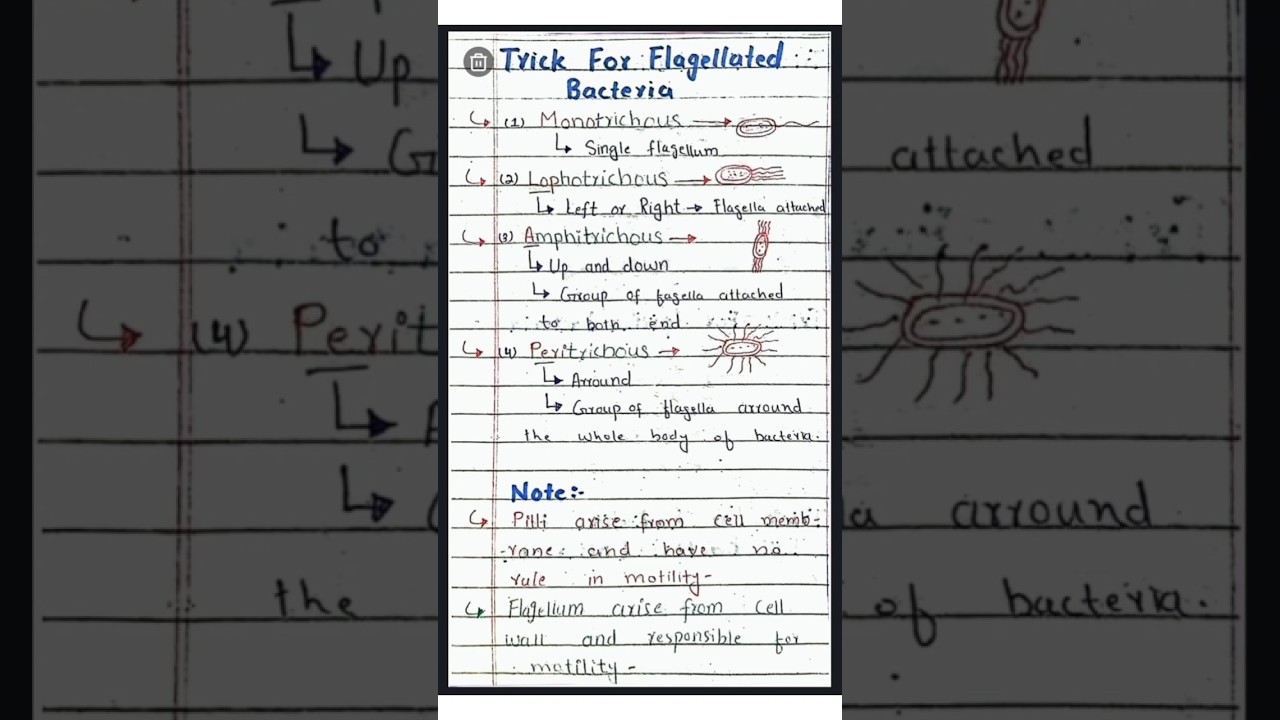 Trick For Flagellated
Bacteria
(1) Monotrichous
Single flagellum
(2) Lophotrichous
Left or Right → Flagella attached
(3) Amphitrichous
Up and down
Group of fagella attached
to both end
(4) Peritrichous
Arround
Group of flagella arround
the whole body of bacteria.
Note:-
Pilli arise from cell memb-
-rane and have no
rule in motility-
Flagellum arise from cell
wall and responsible for
motility-
Up
G
attached
to
(4) Perit
a arround
the
of bacteria.